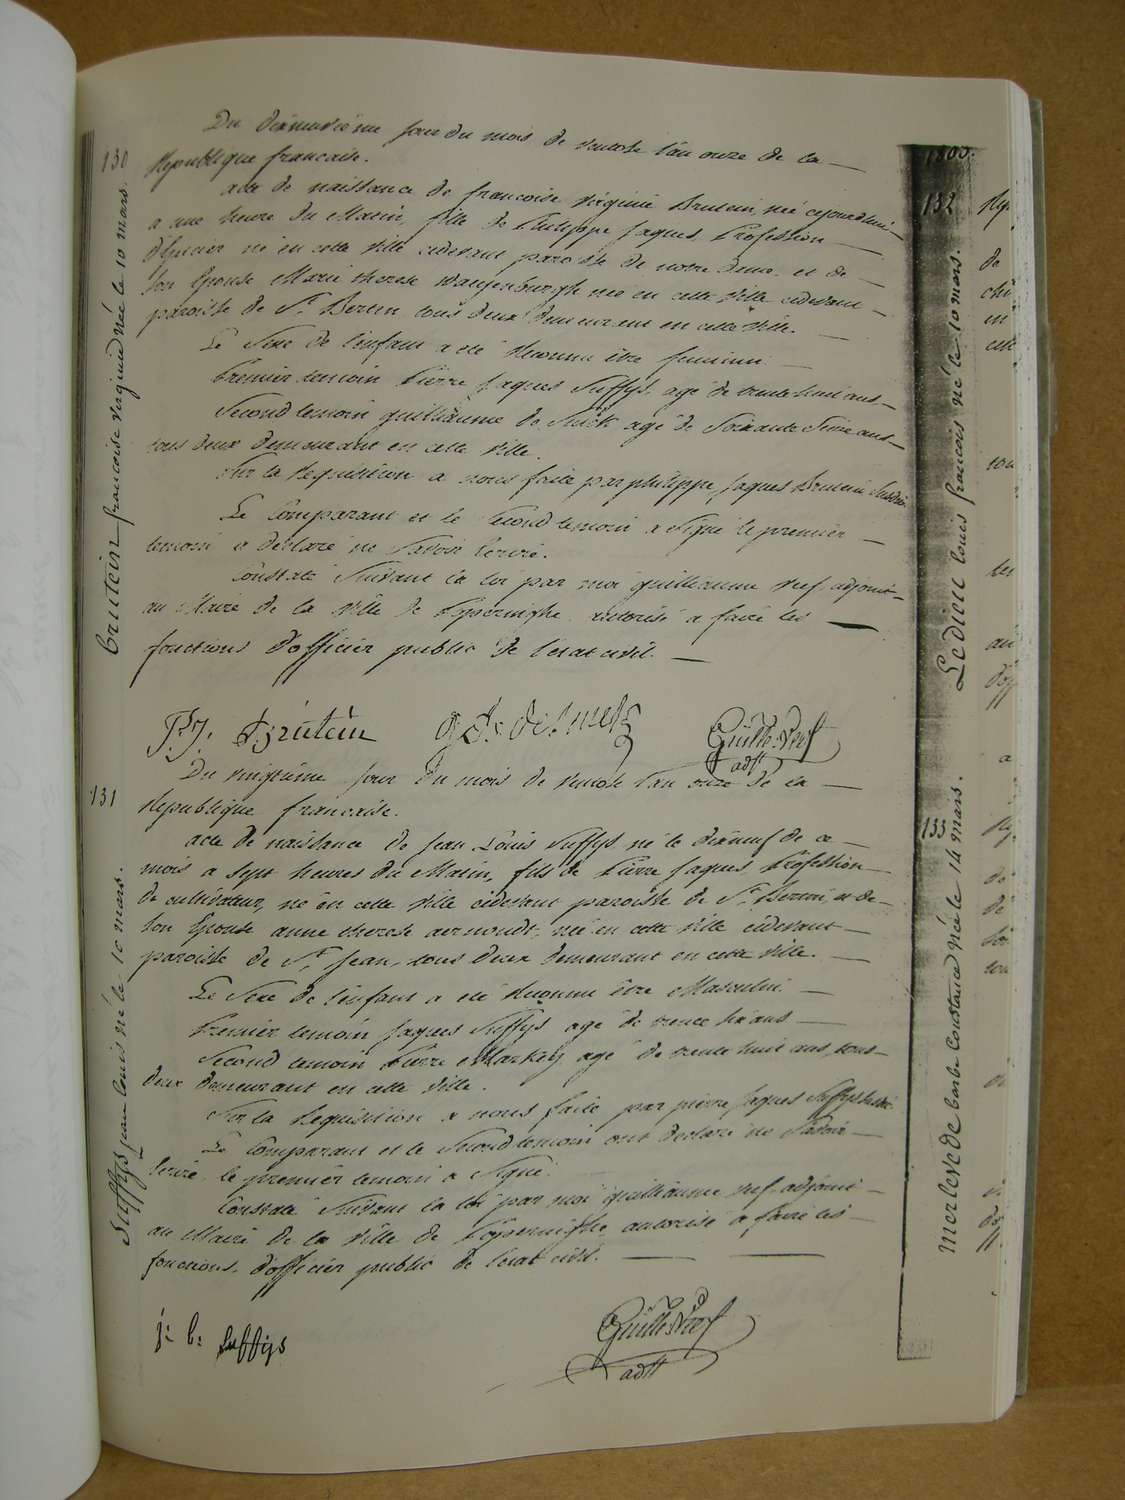 130
Du dixneuvième jour du mois de ventose l'an onze de la
République francaise.
acte de naissance de francoise virginie Brutein, née cejourdhui
a une heure du Matin, fille de Philippe Jaques Profession
d'épicier né en cette ville cidevant paroisse de notre dame, et de
son Epouse Marie therese née en cette ville cidevant
paroisse de St. Bertin tous deux demeurant en cette ville.
Le Sexe de l'enfant a été reconnu être feminin
Premier temoin Pierre Jaques Suffys, agé de trente huit ans
Second temoin guilliaume de agé de Soixante ans
tous deux demeurant en cette ville.
Sur la Requisition a nous faite par philippe Jaques Brutein
Le Comparant et le Second temoin a Signé le premier
temoin a déclaré ne Savoir Ecrire.
Constaté Suivant la loi par moi guilliaume adjoint
au Maire de la ville de autorisé a faire les
fonctions d'officier public de l'etat civil.
brutein francoise virginie née le 10 mars.
P.J. Brutein
adjt
131
Du vingtième jour du mois de ventose l'an onze de la
République francaise.
acte de naissance de Jean Louis Suffys né le dixneuf de ce
mois a sept heures du Matin, fils de Pierre Jaques Profession
de cultivateur, né en cette ville cidevant paroisse de St. Bertin, et de
son Epouse anne therese aernoudt, née en cette ville cidevant
paroisse de St. Jean, tous deux demeurant en cette ville.
Le Sexe de l'enfant a été reconnu être Masculin
Premier temoin Jaques Suffys agé de trente six ans
Second temoin Pierre agé de trente huit ans, tous
deux demeurant en cette ville.
Sur la Requisition a nous faite par pierre Jaques Suffys
Le Comparant et le Second temoin ont declaré ne Savoir
Ecrire, le premier temoin a Signé.
Constaté Suivant la loi par moi guilliaume adjoint
au Maire de la ville de autorisé a faire les
fonctions d'officier public de l'etat civil.
Suffys jean louis né le 10 mars.
j: b: Suffys
adjt
1803.
132
Ledieu louis francois né le 10 mars.
133
merlevede barbe Constance née le 14 mars.